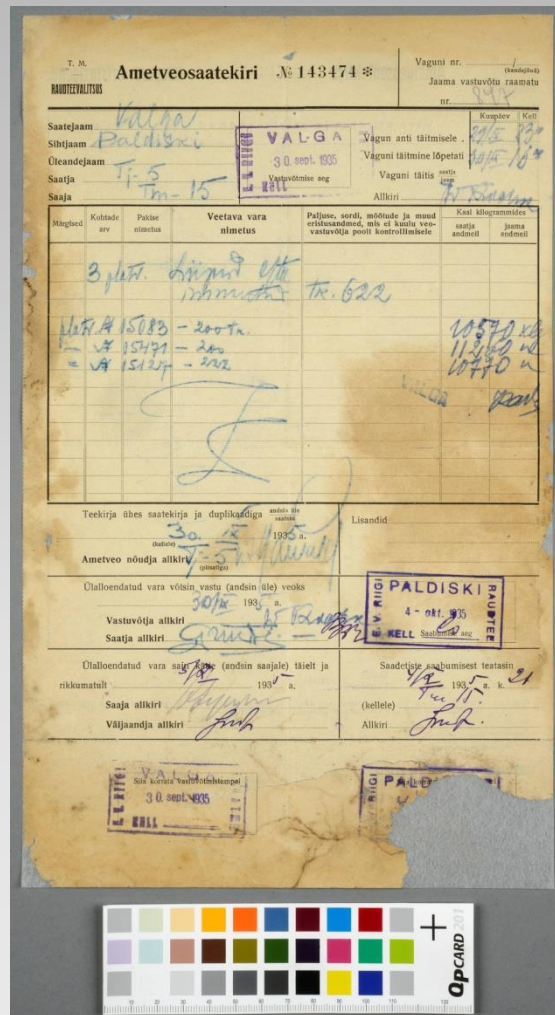 T. M.
RAUDTEEVALITSUS
Ametveosaatekiri № 143474 *
Vaguni nr. /
(kandejõud)
Jaama vastuvõtu raamatu
nr. 847
Saatejaam Valga
Sihtjaam Paldiski
Üleandejaam
Saatja Tj-5
Saaja Tm-15
E. V. RIIGI
VALGA
30. sept. 1935
KELL
Vastuvõtmise aeg
Kuupäev Kell
Vagun anti täitmisele 29/IX
Vaguni täitmine lõpetati 30/IX
Vaguni täitis saatja jaam
Allkiri
Märgised
Kohtade arv
Pakise nimetus
Veetava vara nimetus
Paljuse, sordi, mõõtude ja muud eristusandmed, mis ei kuulu veovastuvõtja poolt kontrollimisele
Kaal kilogrammides
saatja andmeil
jaama andmeil
3 platv. Liiprid
tk. 622
platv. A 15083 - 200 tk. 10570 kg
" A 15471 - 200 11200 "
" A - 222 10770 "
VALGA
Teekirja ühes saatekirja ja duplikaadiga andsin üle saatsin
30. IX 1935 a.
(kellele)
Ametveo nõudja allkiri Tj-5
(pitsatiga)
Lisandid
Ülalloendatud vara võtsin vastu (andsin üle) veoks
30/IX 1935 a.
Vastuvõtja allkiri
Saatja allkiri
E. V. RIIGI
PALDISKI
RAUDTEE
4 - okt. 1935
KELL Saabumise aeg
Ülalloendatud vara sain kätte (andsin saajale) täielt ja
rikkumatult 5/X 1935 a.
Saaja allkiri
Väljaandja allkiri
Saadetiste saabumisest teatasin
4/X 1935 a. k. 21
Tm 15.
(kellele)
Allkiri
E. V. RIIGI
VALGA
Siia korrata vastuvõtmistempel
30. sept. 1935
KELL
RIIGI
PALDISKI